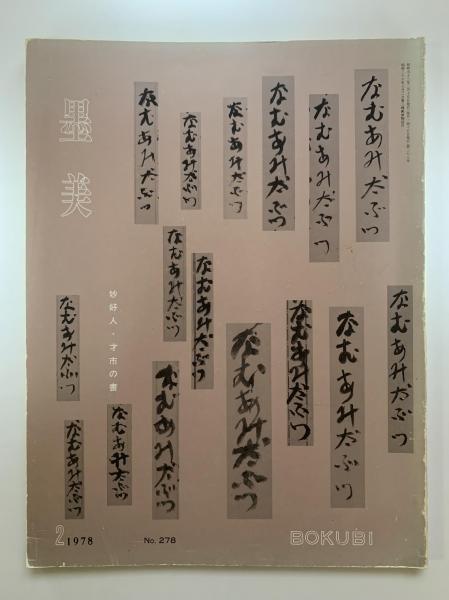 墨美
なむあみだぶつ
なむあみだぶつ
なむあみだぶつ
なむあみだぶつ
なむあみだぶつ
なむあみだぶつ
なむあみだぶつ
なむあみだぶつ
妙好人・才市の書
なむあみだぶつ
なむあみだぶつ
なむあみだぶつ
なむあみだぶつ
なむあみだぶつ
なむあみだぶつ
なむあみだぶつ
なむあみだぶつ
2 1978
No. 278
BOKUBI